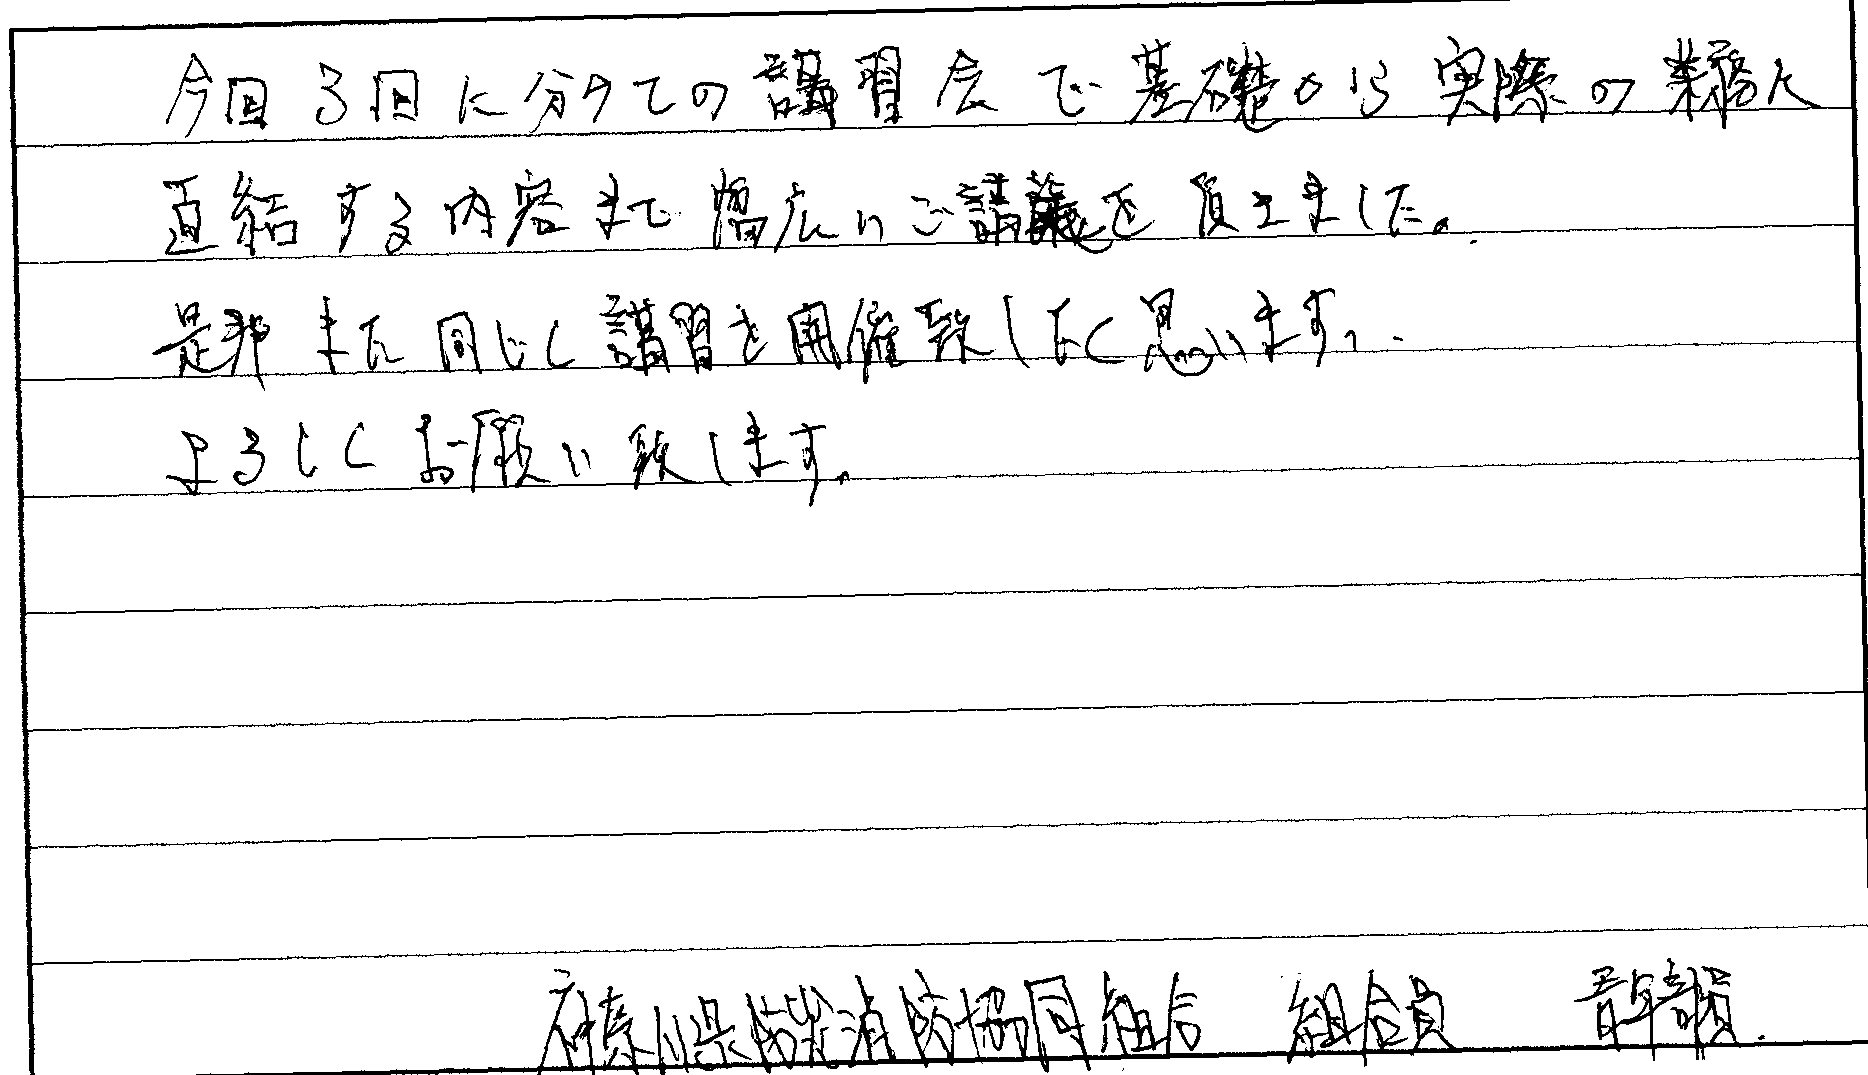 今回3回に分けての講習会で基礎から実際の業務に
直結する内容まで幅広いご講義を頂きました。
是非また同じく講習を開催致したく思います。
よろしくお願い致します。
神奈川県防災消防協同組合 組合員 青年部員